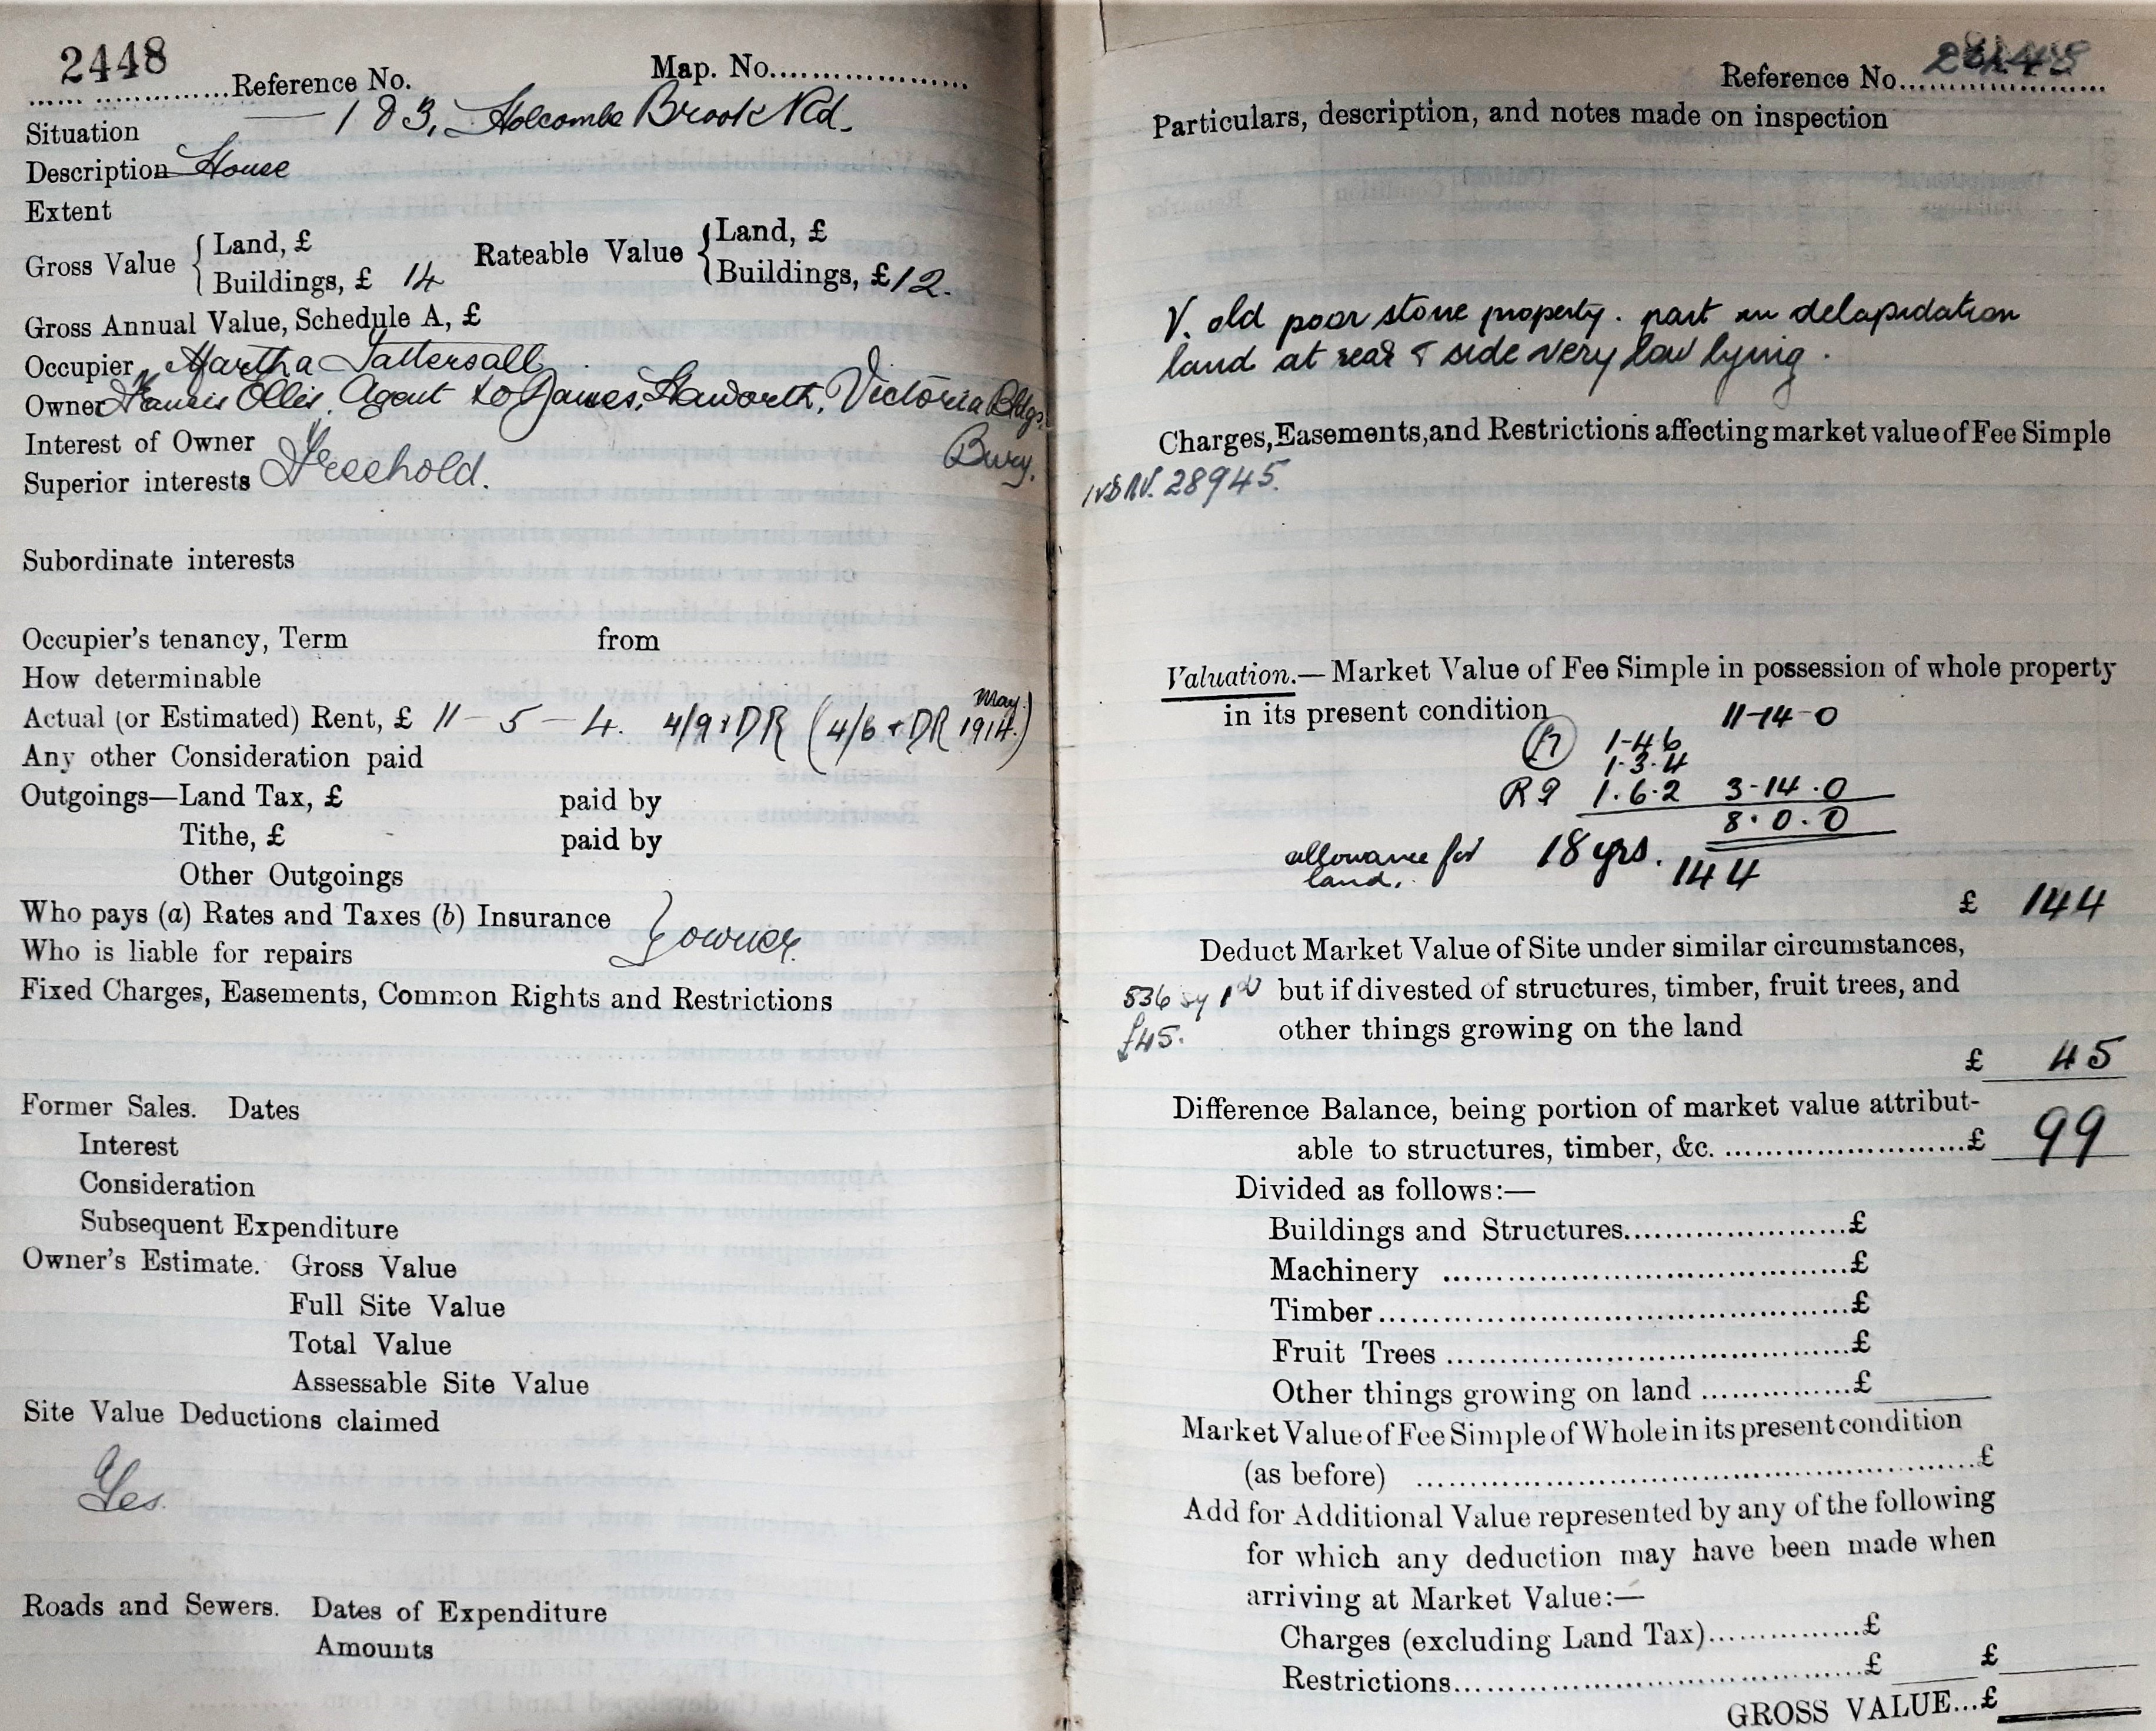 2448
...... ..............Reference No. Map. No....................
Situation 183, Holcombe Brook Rd.
Description House
Extent
Gross Value { Land, £ Rateable Value { Land, £
Buildings, £ 14 Buildings, £ 12.
Gross Annual Value, Schedule A, £
Occupier Martha Tattersall
Owner Francis Ollis, Agent to James Haworth, Victoria Bldgs.
Bury.
Interest of Owner
Superior interests Freehold.
Subordinate interests
Occupier's tenancy, Term from
How determinable
Actual (or Estimated) Rent, £ 11 - 5 - 4. 4/9 + DR (4/6 + DR May 1914.)
Any other Consideration paid
Outgoings—Land Tax, £ paid by
Tithe, £ paid by
Other Outgoings
Who pays (a) Rates and Taxes (b) Insurance } owner.
Who is liable for repairs
Fixed Charges, Easements, Common Rights and Restrictions
Former Sales. Dates
Interest
Consideration
Subsequent Expenditure
Owner's Estimate. Gross Value
Full Site Value
Total Value
Assessable Site Value
Site Value Deductions claimed
Yes.
Roads and Sewers. Dates of Expenditure
Amounts
Reference No.
Particulars, description, and notes made on inspection
V. old poor stone property. part in delapidation
land at rear & side very low lying.
Charges, Easements, and Restrictions affecting market value of Fee Simple
28945.
Valuation.—Market Value of Fee Simple in possession of whole property
in its present condition 11-14-0
1-4-6
1-3-4
R 9 1.6.2 3-14.0
8.0.0
allowance for 18 yrs.
land. 144
£ 144
Deduct Market Value of Site under similar circumstances,
536 sy but if divested of structures, timber, fruit trees, and
£45. other things growing on the land
£ 45
Difference Balance, being portion of market value attribut-
able to structures, timber, &c. ..........................£ 99
Divided as follows:—
Buildings and Structures.......................£
Machinery ..........................................£
Timber.................................................£
Fruit Trees ..........................................£
Other things growing on land ...............£
Market Value of Fee Simple of Whole in its present condition
(as before) .........................................................£
Add for Additional Value represented by any of the following
for which any deduction may have been made when
arriving at Market Value:—
Charges (excluding Land Tax)...............£
Restrictions..........................................£ £
GROSS VALUE...£